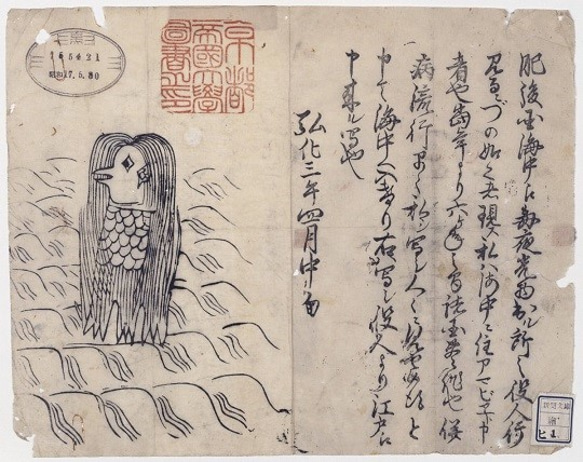 肥後国海中江毎夜光物出ル所之役人行
見るニづの如く者現ス私ハ海中ニ住アマビヱト申
者也當年より六ヶ年之間諸国豊作也併
病流行早々私ヲ写シ人々ニ見セ候得と
申て海中へ入けり右写シ役人より江戸江
申来ル写也
弘化三年四月中旬
京都
帝國大學
圖書之印
昭和17.5.30